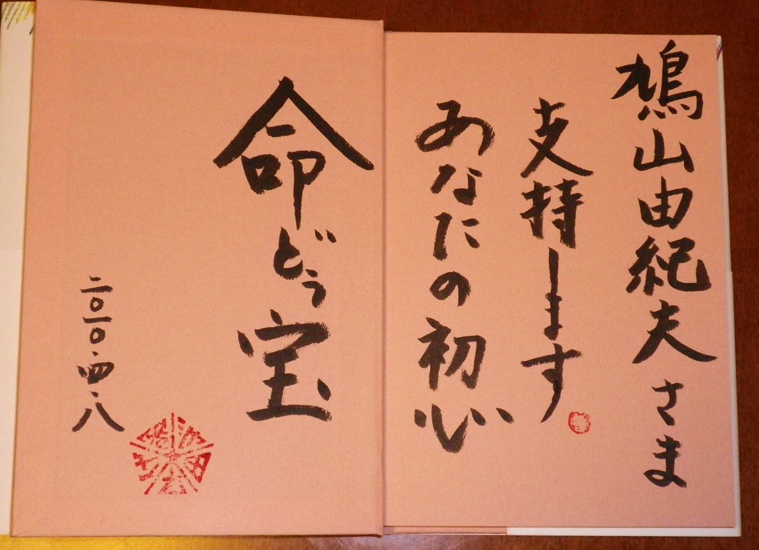 鳩山由紀夫さま
支持します
あなたの初心
命どぅ宝
二〇一〇・四・八